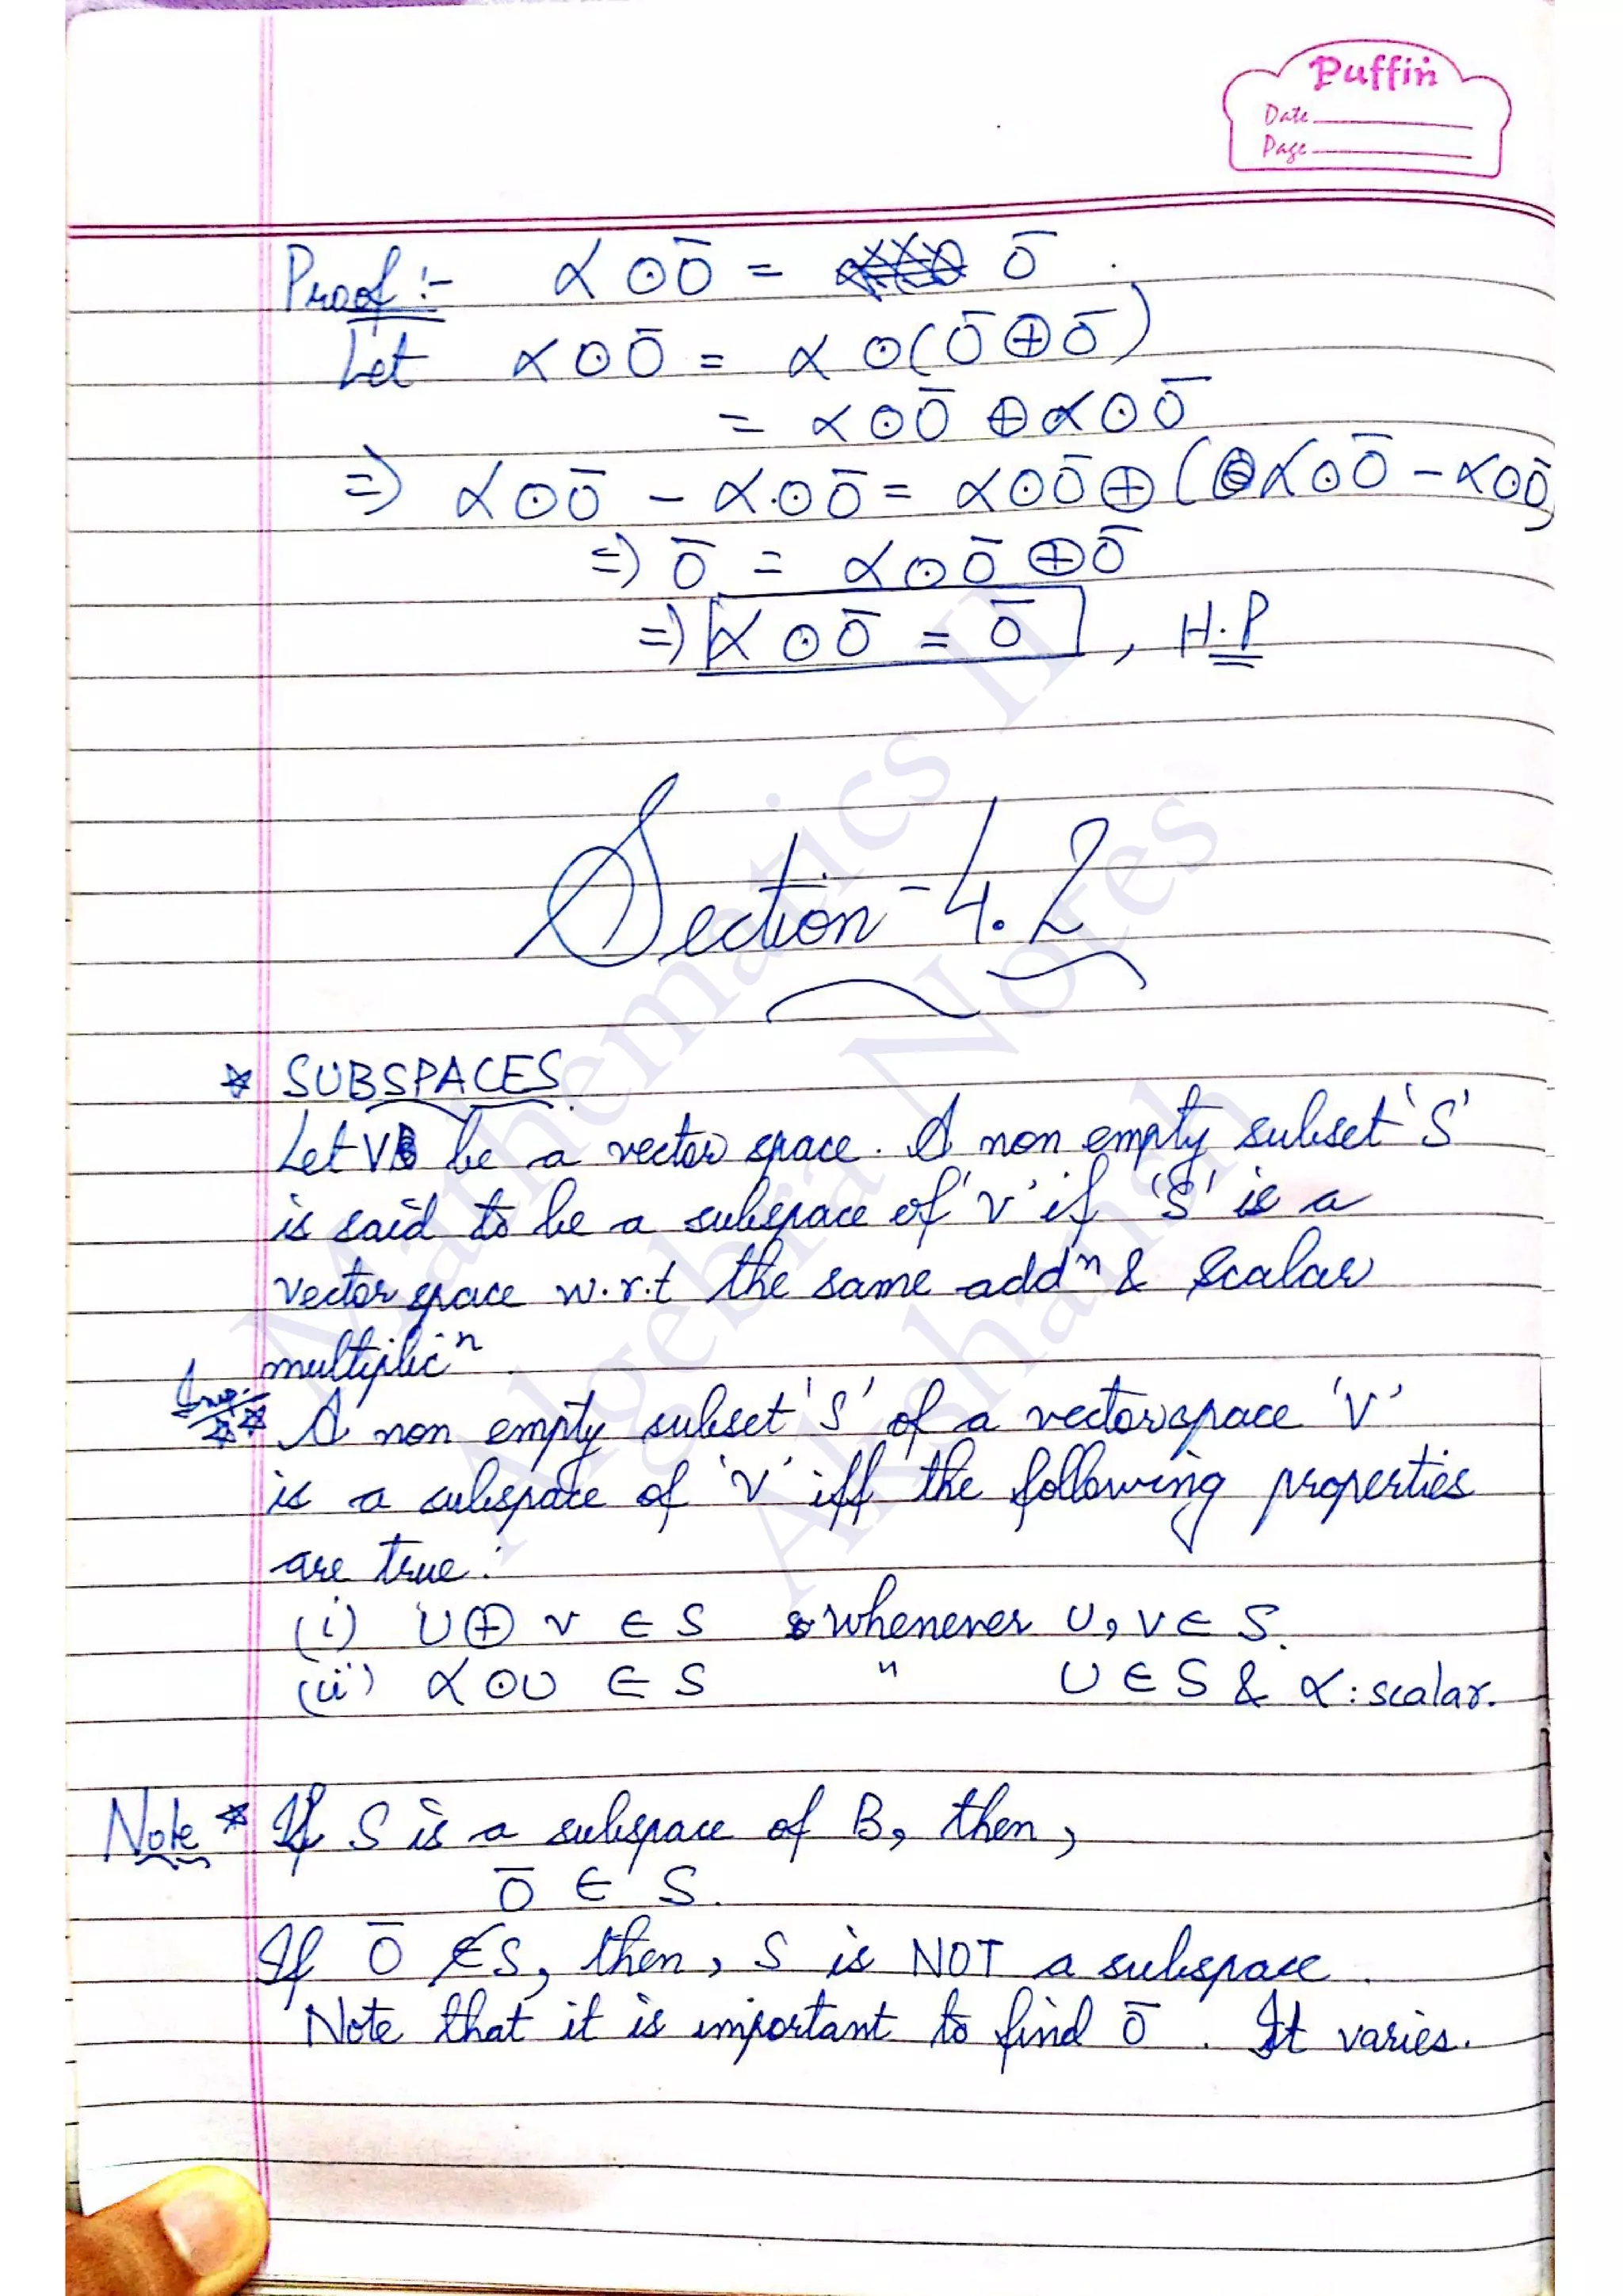 Puffin
Date
Page
Proof :- α ⊙ 0̄ = 0̄ .
Let α ⊙ 0̄ = α ⊙ (0̄ ⊕ 0̄)
= α ⊙ 0̄ ⊕ α ⊙ 0̄
⇒ α ⊙ 0̄ - α ⊙ 0̄ = α ⊙ 0̄ ⊕ (α ⊙ 0̄ - α ⊙ 0̄)
⇒ 0̄ = α ⊙ 0̄ ⊕ 0̄
⇒ α ⊙ 0̄ = 0̄ , H.P
Section - 4.2
* SUBSPACES
Let V be a vector space. A non empty subset 'S'
is said to be a subspace of 'V' if 'S' is a
vector space w.r.t the same addⁿ & scalar
multiplicⁿ.
Imp.
** A non empty subset 'S' of a vectorspace 'V'
is a subspace of 'V' iff the following properties
are true :
(i) U ⊕ V ∈ S whenever U, V ∈ S.
(ii) α ⊙ U ∈ S " U ∈ S & α : scalar.
Note * If S is a subspace of B, then,
0̄ ∈ S.
If 0̄ ∉ S, then, S is NOT a subspace.
Note that it is important to find 0̄ . It varies.
Mathematics II
Algebra Notes
Akshansh